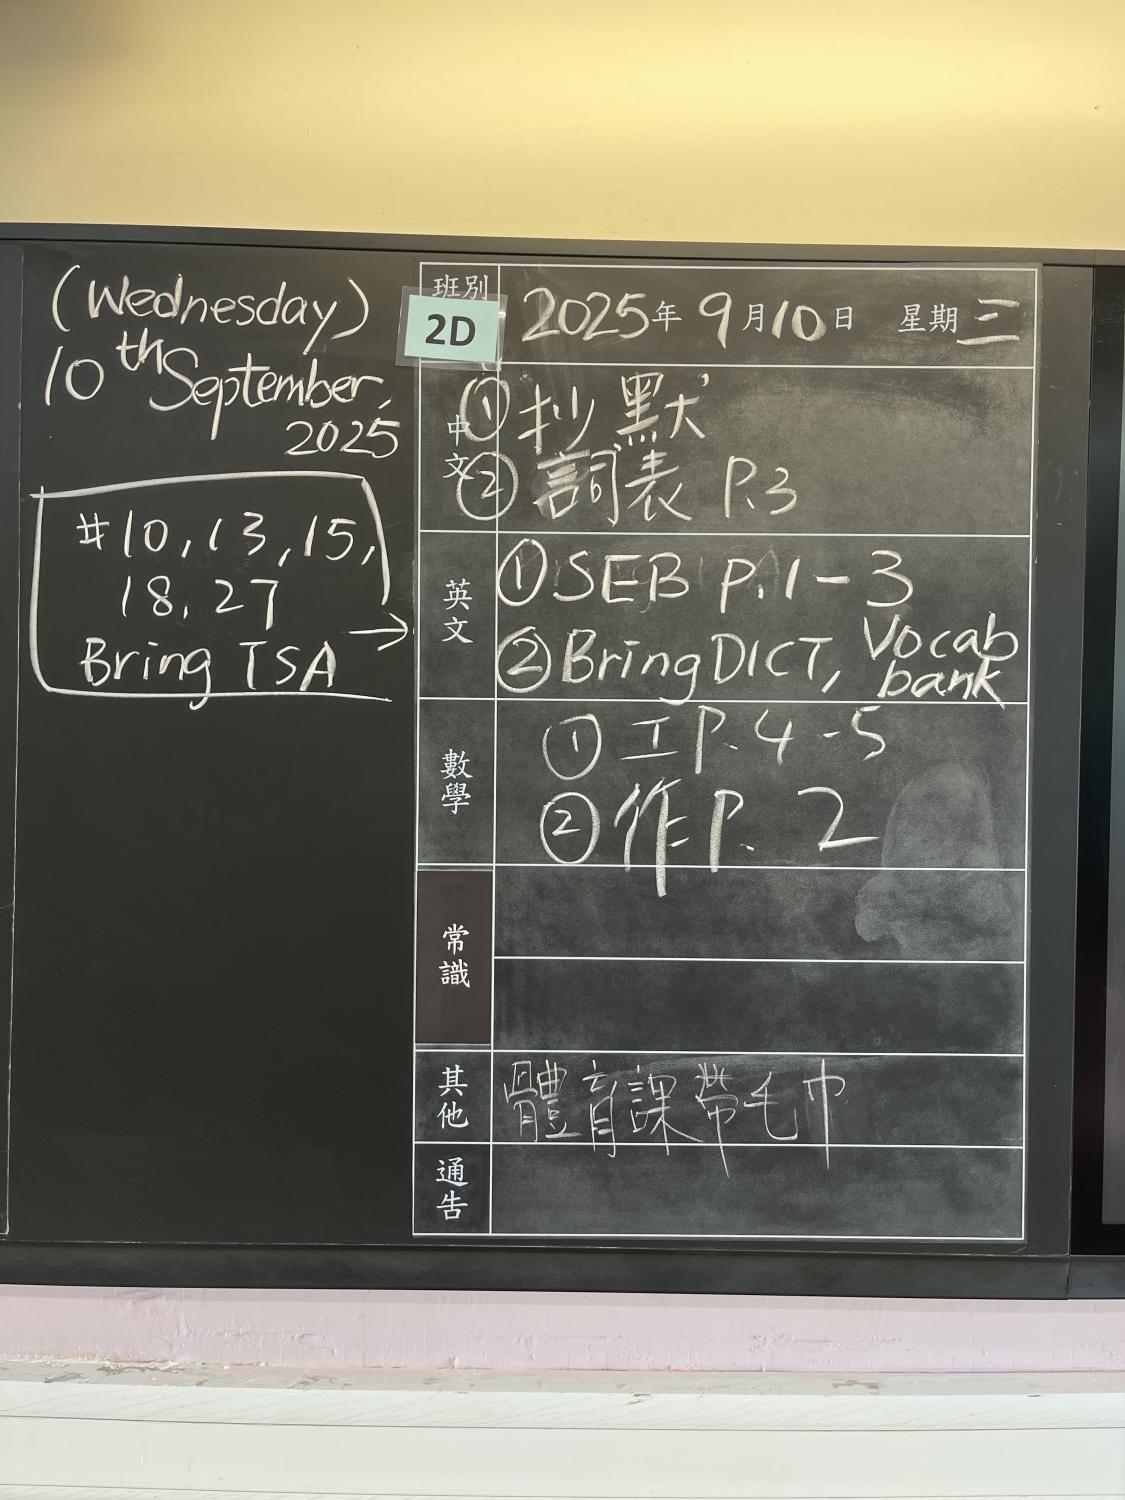 (Wednesday)
10th September,
2025
#10, 13, 15,
18, 27
Bring TSA →
班別
2D
2025年 9月10日 星期三
中文
① 抄默
② 詞表 P.3
英文
① SEB P.1-3
② Bring DICT, Vocab bank
數學
① 工 P.4-5
② 作 P. 2
常識
其他
體育課帶毛巾
通告